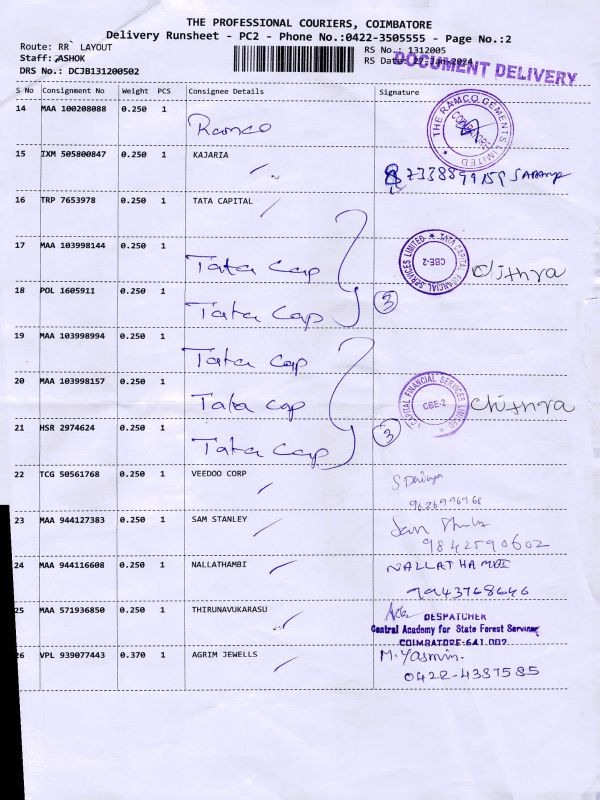 THE PROFESSIONAL COURIERS, COIMBATORE
Delivery Runsheet - PC2 - Phone No.:0422-3505555 - Page No.:2
Route: RR LAYOUT RS No.: 1312005
Staff: ASHOK RS Date: 27-Jan-2024
DRS No.: DCJB131200502 DOCUMENT DELIVERY
S No Consignment No Weight PCS Consignee Details Signature
14 MAA 100208088 0.250 1 Ramco THE RAMCO CEMENTS LIMITED
15 IXM 505800847 0.250 1 KAJARIA 7338899159
16 TRP 7653978 0.250 1 TATA CAPITAL
17 MAA 103998144 0.250 1 Tata Cap TATA CAPITAL FINANCIAL SERVICES LIMITED CBE-2 Chithra
18 POL 1605911 0.250 1 Tata Cap 3
19 MAA 103998994 0.250 1 Tata Cap
20 MAA 103998157 0.250 1 Tata Cap CAPITAL FINANCIAL SERVICES LIMITED CBE-2 Chithra
21 HSR 2974624 0.250 1 Tata Cap 3
22 TCG 50561768 0.250 1 VEEDOO CORP
9626996968
23 MAA 944127383 0.250 1 SAM STANLEY
9842590602
24 MAA 944116608 0.250 1 NALLATHAMBI NALLATHAMBI
9943768646
25 MAA 571936850 0.250 1 THIRUNAVUKARASU DESPATCHER
Central Academy for State Forest Services
COIMBATORE-641 002
26 VPL 939077443 0.370 1 AGRIM JEWELLS M. Yasmin.
0422-4387585